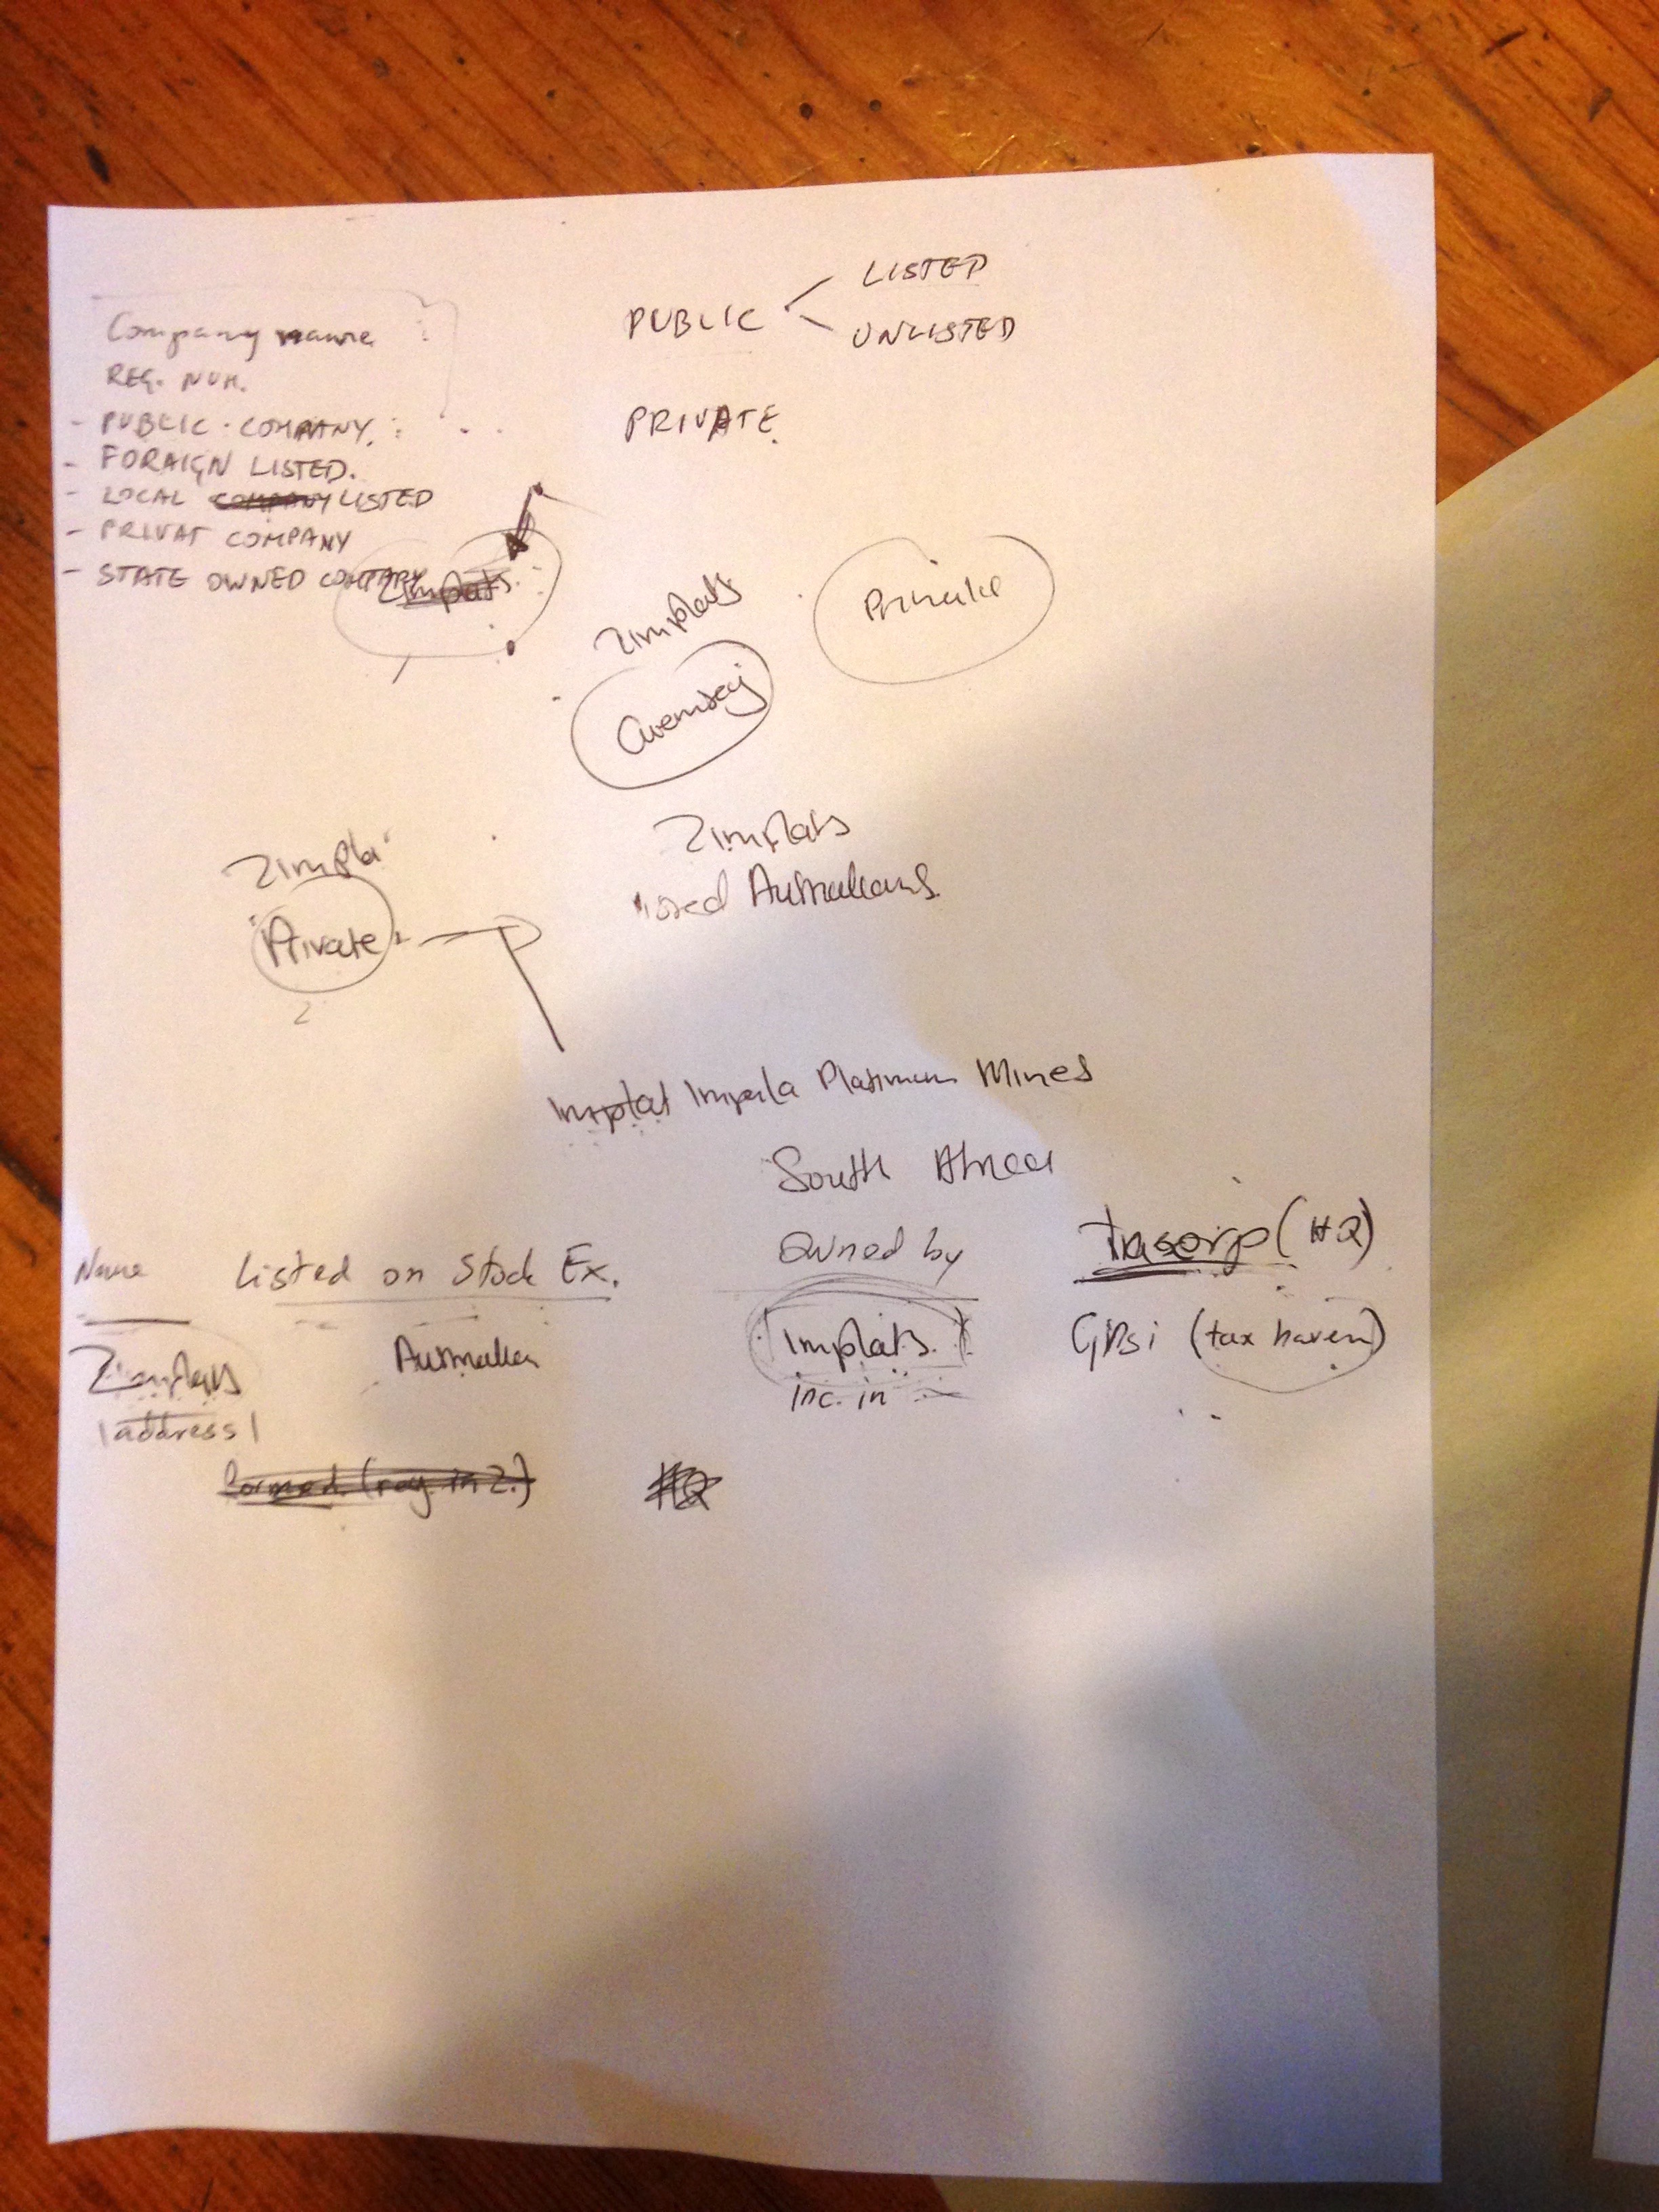 Company name
REG. NUM.
- PUBLIC COMPANY.
- FORAIGN LISTED.
- LOCAL COMPANY LISTED
- PRIVAT COMPANY
- STATE OWNED COMPANY
PUBLIC
LISTED
UNLISTED
PRIVATE
Zimplats
Zimplats
Guernsey
Private
Zimplats
Australians
Zimpla
Private
Implat Impala Platinum Mines
South Africa
Name
Listed on Stock Ex.
Owned by
(HQ)
Zimplats
Australia
Implats
GBsi (tax haven)
address
inc. in
Formed (reg. in Z.)
HQ